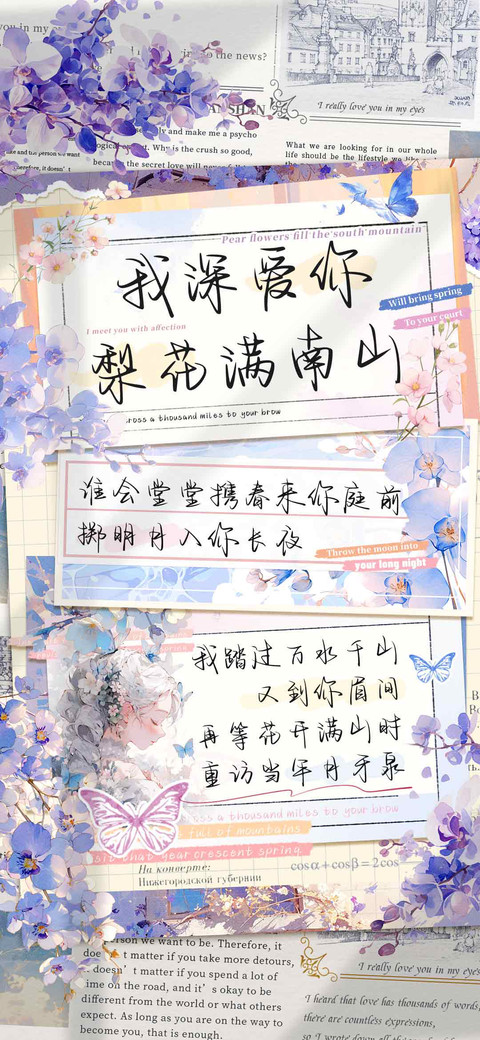 you in my eyes
to the news?
I really love you in my eyes
and make me a psycho
Why is the crush so good,
because the secret love will never
What we are looking for in our whole
life should be the lifestyle we
Pear flowers fill the south mountain
我深爱你
Will bring spring
To your court
I meet you with affection
梨花满南山
ross a thousand miles to your brow
谁会堂堂携春来你庭前
掷明月入你长夜
Throw the moon into
your long night
我踏过万水千山
又到你眉间
再等花开满山时
重访当年月牙泉
ss a thousand miles to your brow
full of mountains
sit that year crescent spring.
На конверте:
Нижегородской губернии
cosα+cosβ=2cos
person we want to be. Therefore, it
doesn't matter if you take more detours,
doesn't matter if you spend a lot of
time on the road, and it's okay to be
different from the world or what others
expect. As long as you are on the way to
become you, that is enough.
I really love you in my eyes
I heard that love has thousands of words,
there are countless expressions,
so I wrote down all